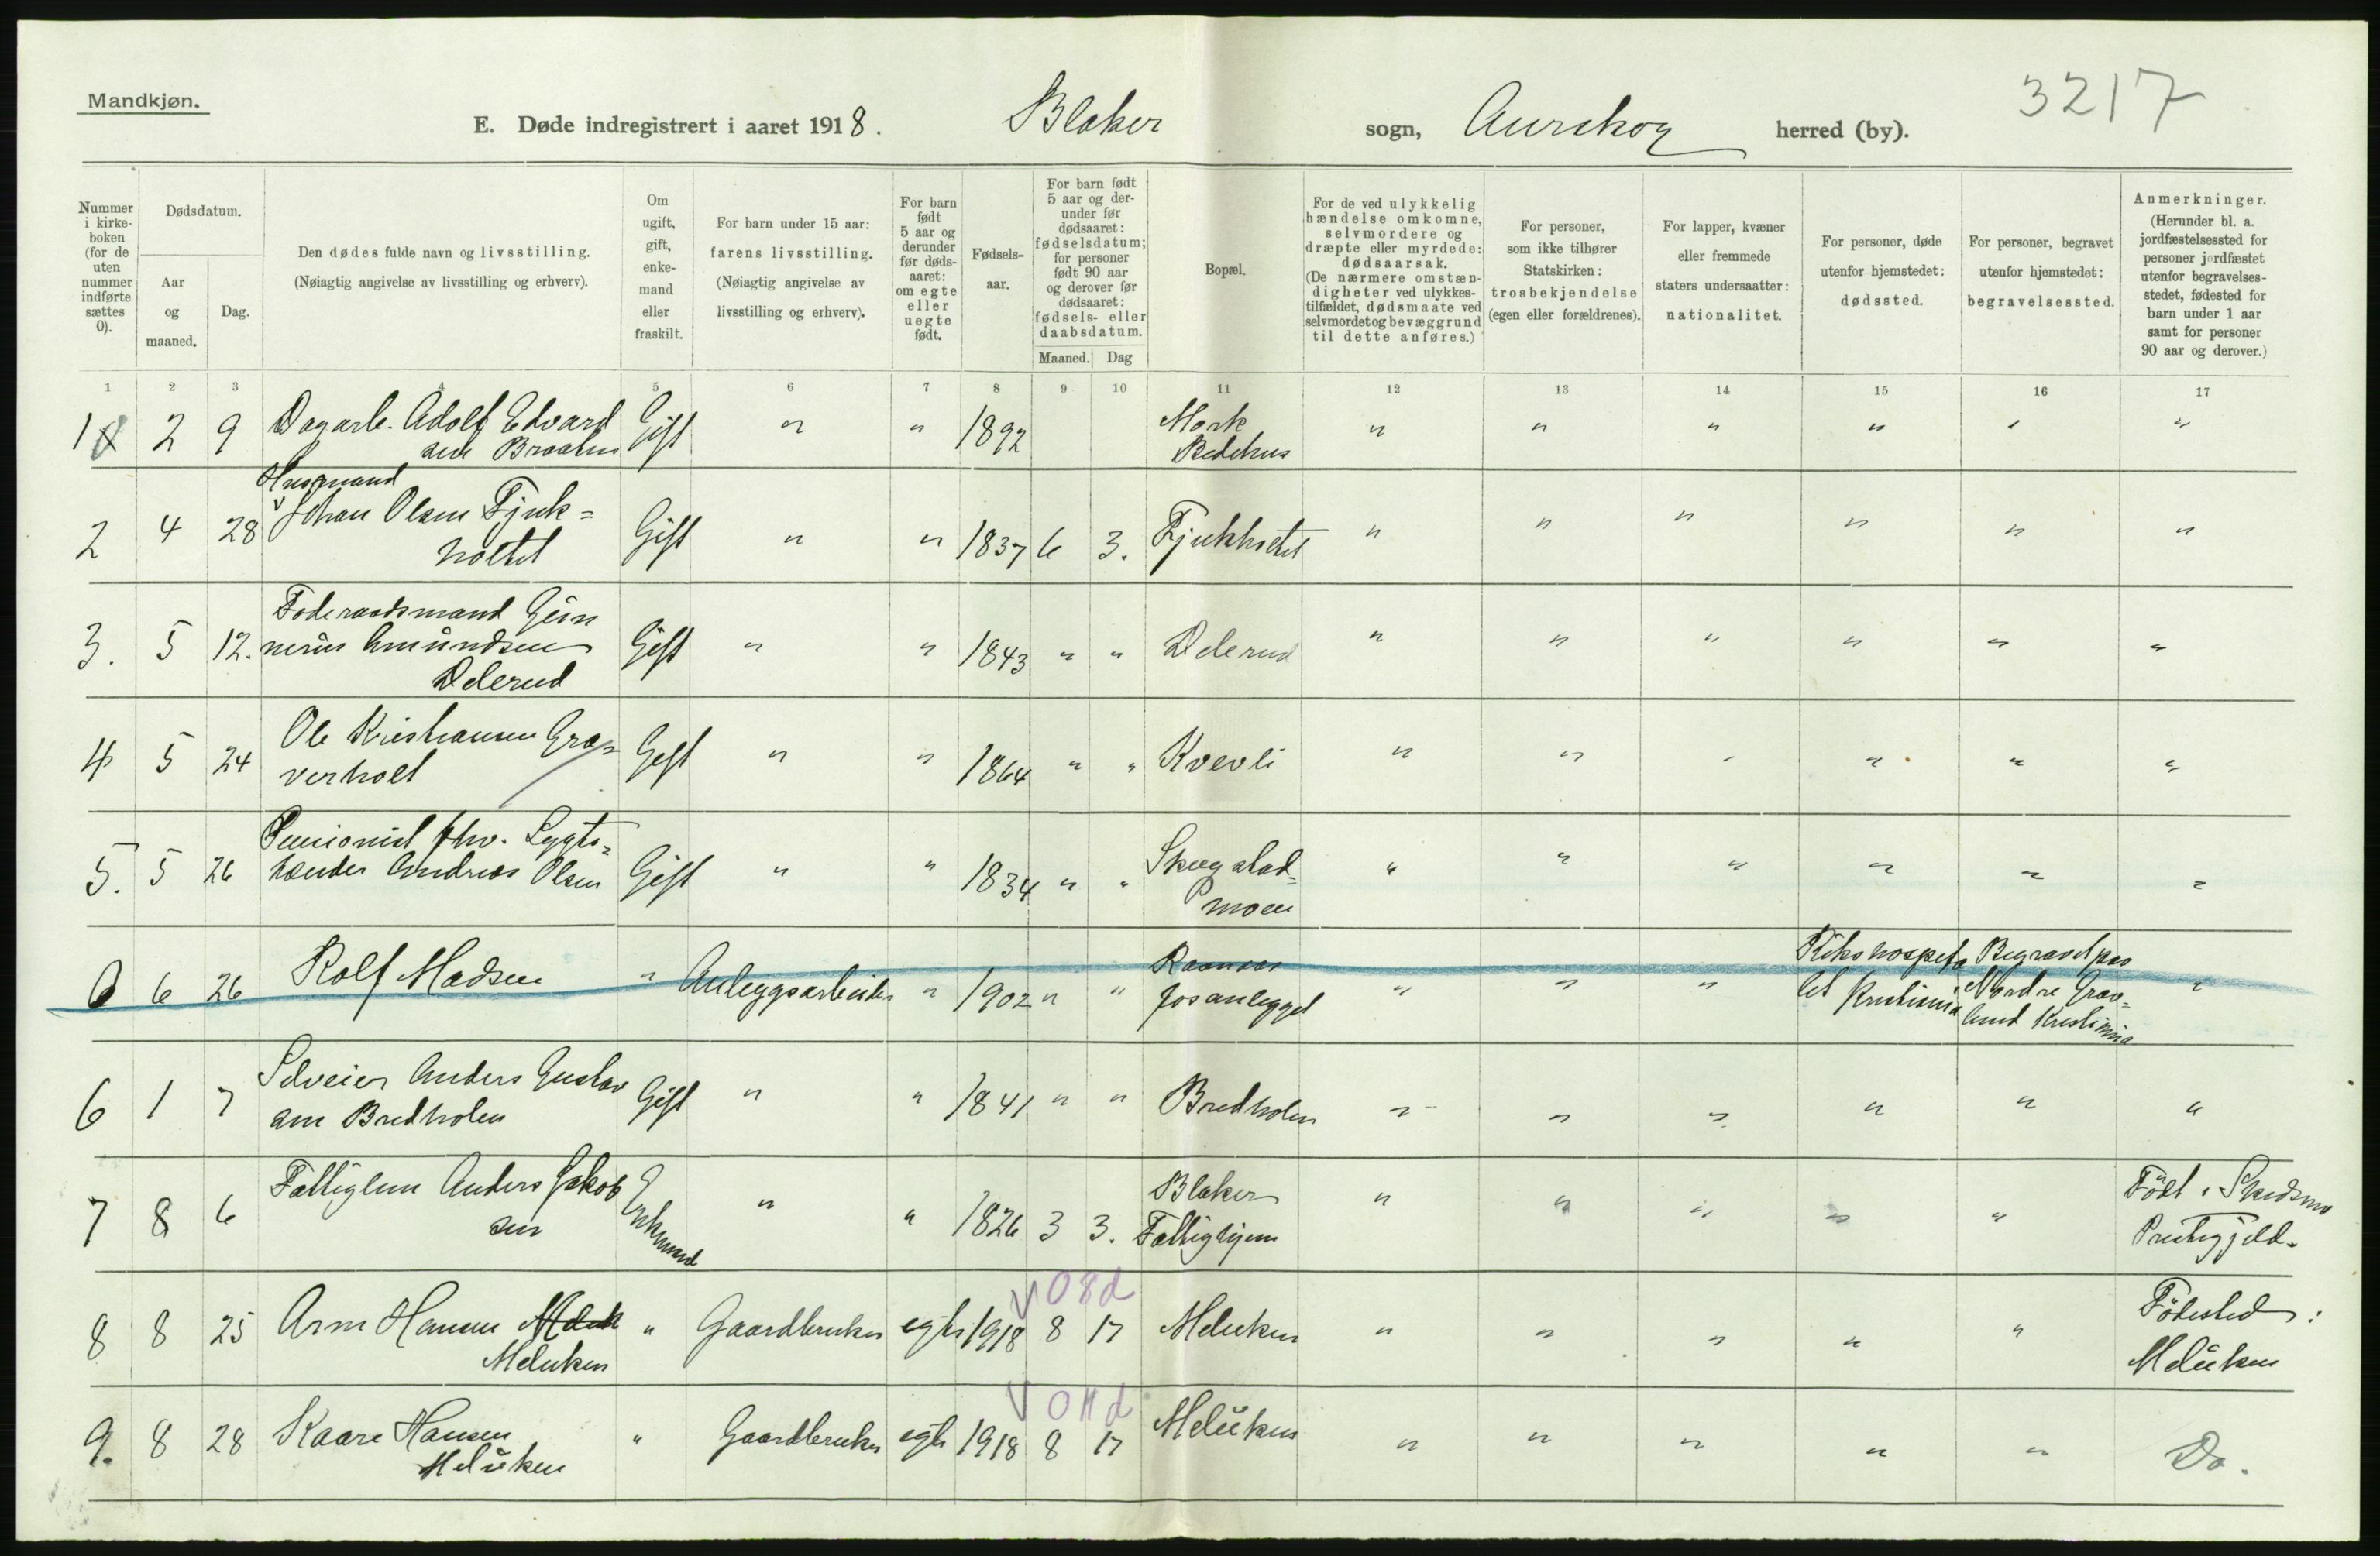 Mandkjøn.
E. Døde indregistrert i aaret 1918. Blaker sogn, Aurskog herred (by).
3217
Nummer i kirke-boken (for de uten nummer indførte sættes 0).
Dødsdatum.
Aar og maaned.
Dag.
Den dødes fulde navn og livsstilling.
(Nøiagtig angivelse av livsstilling og erhverv).
Om ugift, gift, enke-mand eller fraskilt.
For barn under 15 aar: farens livsstilling.
(Nøiagtig angivelse av livsstilling og erhverv).
For barn født 5 aar og derunder før døds-aaret: om egte eller uegte født.
Fødsels-aar.
For barn født 5 aar og der-under før dødsaaret: fødselsdatum; for personer født 90 aar og derover før dødsaaret: fødsels- eller daabsdatum.
Maaned. Dag
Bopæl.
For de ved ulykkelig hændelse omkomne, selvmordere og dræpte eller myrdede: dødsaarsak.
(De nærmere omstæn-digheter ved ulykkes-tilfældet, dødsmaate ved selvmordet og bevæggrund til dette anføres.)
For personer, som ikke tilhører Statskirken: trosbekjendelse (egen eller forældrenes).
For lapper, kvæner eller fremmede staters undersaatter: nationalitet.
For personer, døde utenfor hjemstedet: dødssted.
For personer, begravet utenfor hjemstedet: begravelsessted.
Anmerkninger.
(Herunder bl. a. jordfæstelsessted for personer jordfæstet utenfor begravelses-stedet, fødested for barn under 1 aar samt for personer 90 aar og derover.)
1 2 3 4 5 6 7 8 9 10 11 12 13 14 15 16 17
1 2 9 Dagarb. Adolf Edvard Gift " " 1892 Mork " " " " " "
sen Braaten Bedehus
Husmand
2 4 28 Johan Olsen Fjuk= Gift " " 1837 6 3. Fjukholtet " " " " " "
holtet
Føderaadsmand Gün
3. 5 12. nerius Amundsen Gift " " 1843 " " Delerud " " " " " "
Delerud
4 5 24 Ole Kristiansen Gra= Gift " " 1864 " " Kvevli " " " " " "
verholt
Pensionist fhv. Lygte=
5. 5 26 tænder Andreas Olsen Gift " " 1834 " " Skogstad= " " " " " "
moen
0 6 26 Rolf Madsen " Anlegsarbeider " 1902 " " Raanaas " " " Rikshospita Begravet paa "
fosanlegget let Kristiania Nordre Grav=
lund Kristiania
6 1 7 Selveier Anders Gustav Gift " " 1841 " " Bredholen " " " " " "
sen Bredholen
7 8 6 Fattiglem Anders Jakob Enkemand " " 1826 3 3. Blaker " " " " " Født i Skedsmo
sen Fattighjem Prestegjeld.
V 08d
8 8 25 Arne Hansen " Gaardbruker egte 1918 8 17 Melüken " " " " " Fødested:
Melüken Melüken
V 011d
9. 8 28 Kaare Hansen " Gaardbruker egte 1918 8 17 Melüken " " " " " Do.
Melüken